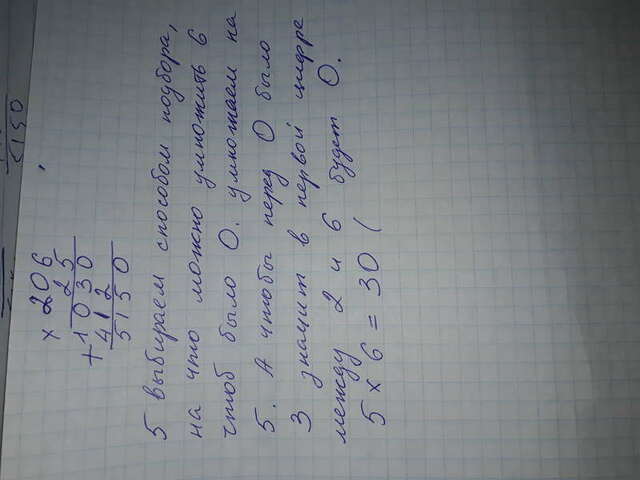 5150
× 206
25
+1030
412
5150
5 выбираем способом подбора,
на что можно умножить 6
чтоб было 0. умножаем на
5. А чтобы перед 0 было
3 значит в первой цифре
между 2 и 6 будет 0.
5 × 6 = 30 (